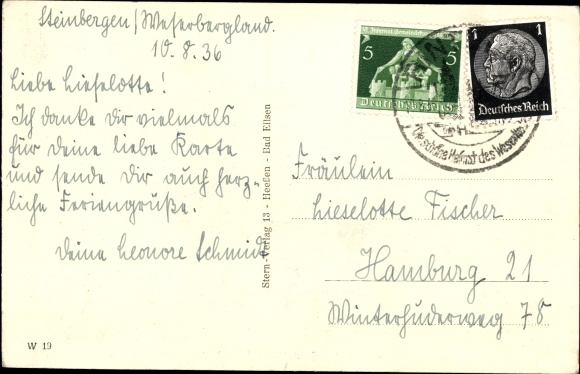 Steinbergen/Weserbergland.
10.8.36
Liebe Lieselotte!
Ich danke Dir vielmals
für Deine liebe Karte
und sende Dir auch herz-
liche Feriengrüße.
Deine Leonore Schmidt
Stern-Verlag 13 - Heeßen - Bad Eilsen
W 19
5 5
Deutsches Reich
1 1
Deutsches Reich
Fräulein
Lieselotte Fischer
Hamburg 21
Winterhuderweg 78